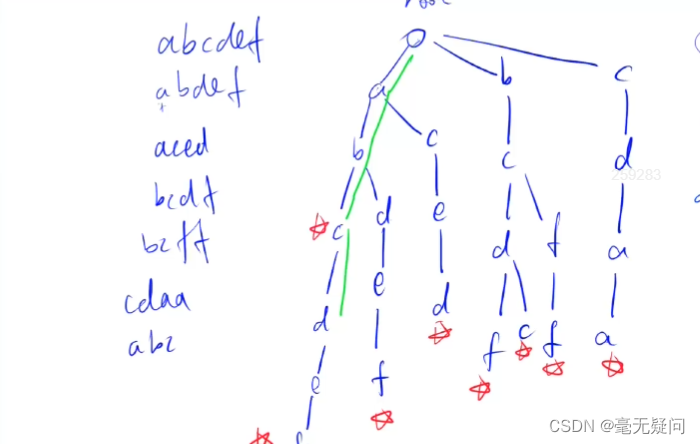 abcdef
abdef
aced
bcdf
bcff
cdaa
abc
b
c
a
b
c
c
d
c
d
e
d
f
a
d
e
d
e
f
d
f
c
f
a
CSDN @毫无疑问